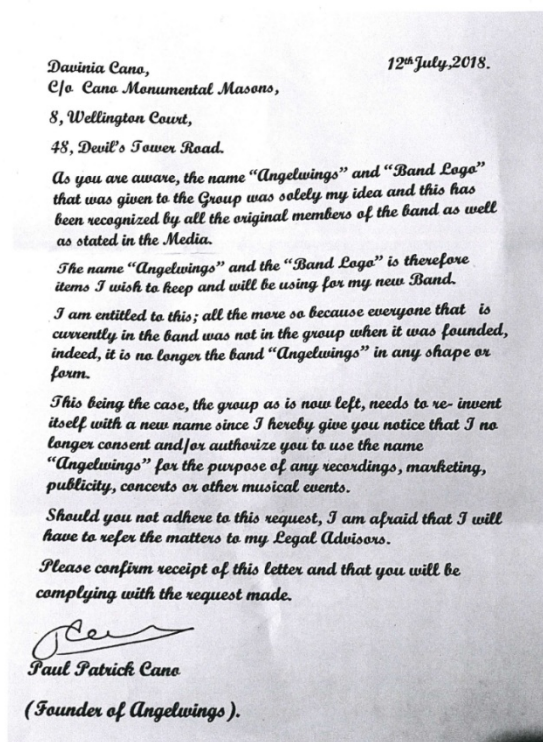 Davinia Cano,
12th July,2018.
C/o Cano Monumental Masons,
8, Wellington Court,
48, Devil's Tower Road.
As you are aware, the name “Angelwings” and “Band Logo”
that was given to the Group was solely my idea and this has
been recognized by all the original members of the band as well
as stated in the Media.
The name “Angelwings” and the “Band Logo” is therefore
items I wish to keep and will be using for my new Band.
I am entitled to this; all the more so because everyone that is
currently in the band was not in the group when it was founded,
indeed, it is no longer the band “Angelwings” in any shape or
form.
This being the case, the group as is now left, needs to re- invent
itself with a new name since I hereby give you notice that I no
longer consent and/or authorize you to use the name
“Angelwings” for the purpose of any recordings, marketing,
publicity, concerts or other musical events.
Should you not adhere to this request, I am afraid that I will
have to refer the matters to my Legal Advisors.
Please confirm receipt of this letter and that you will be
complying with the request made.
Paul Patrick Cano
(Founder of Angelwings).